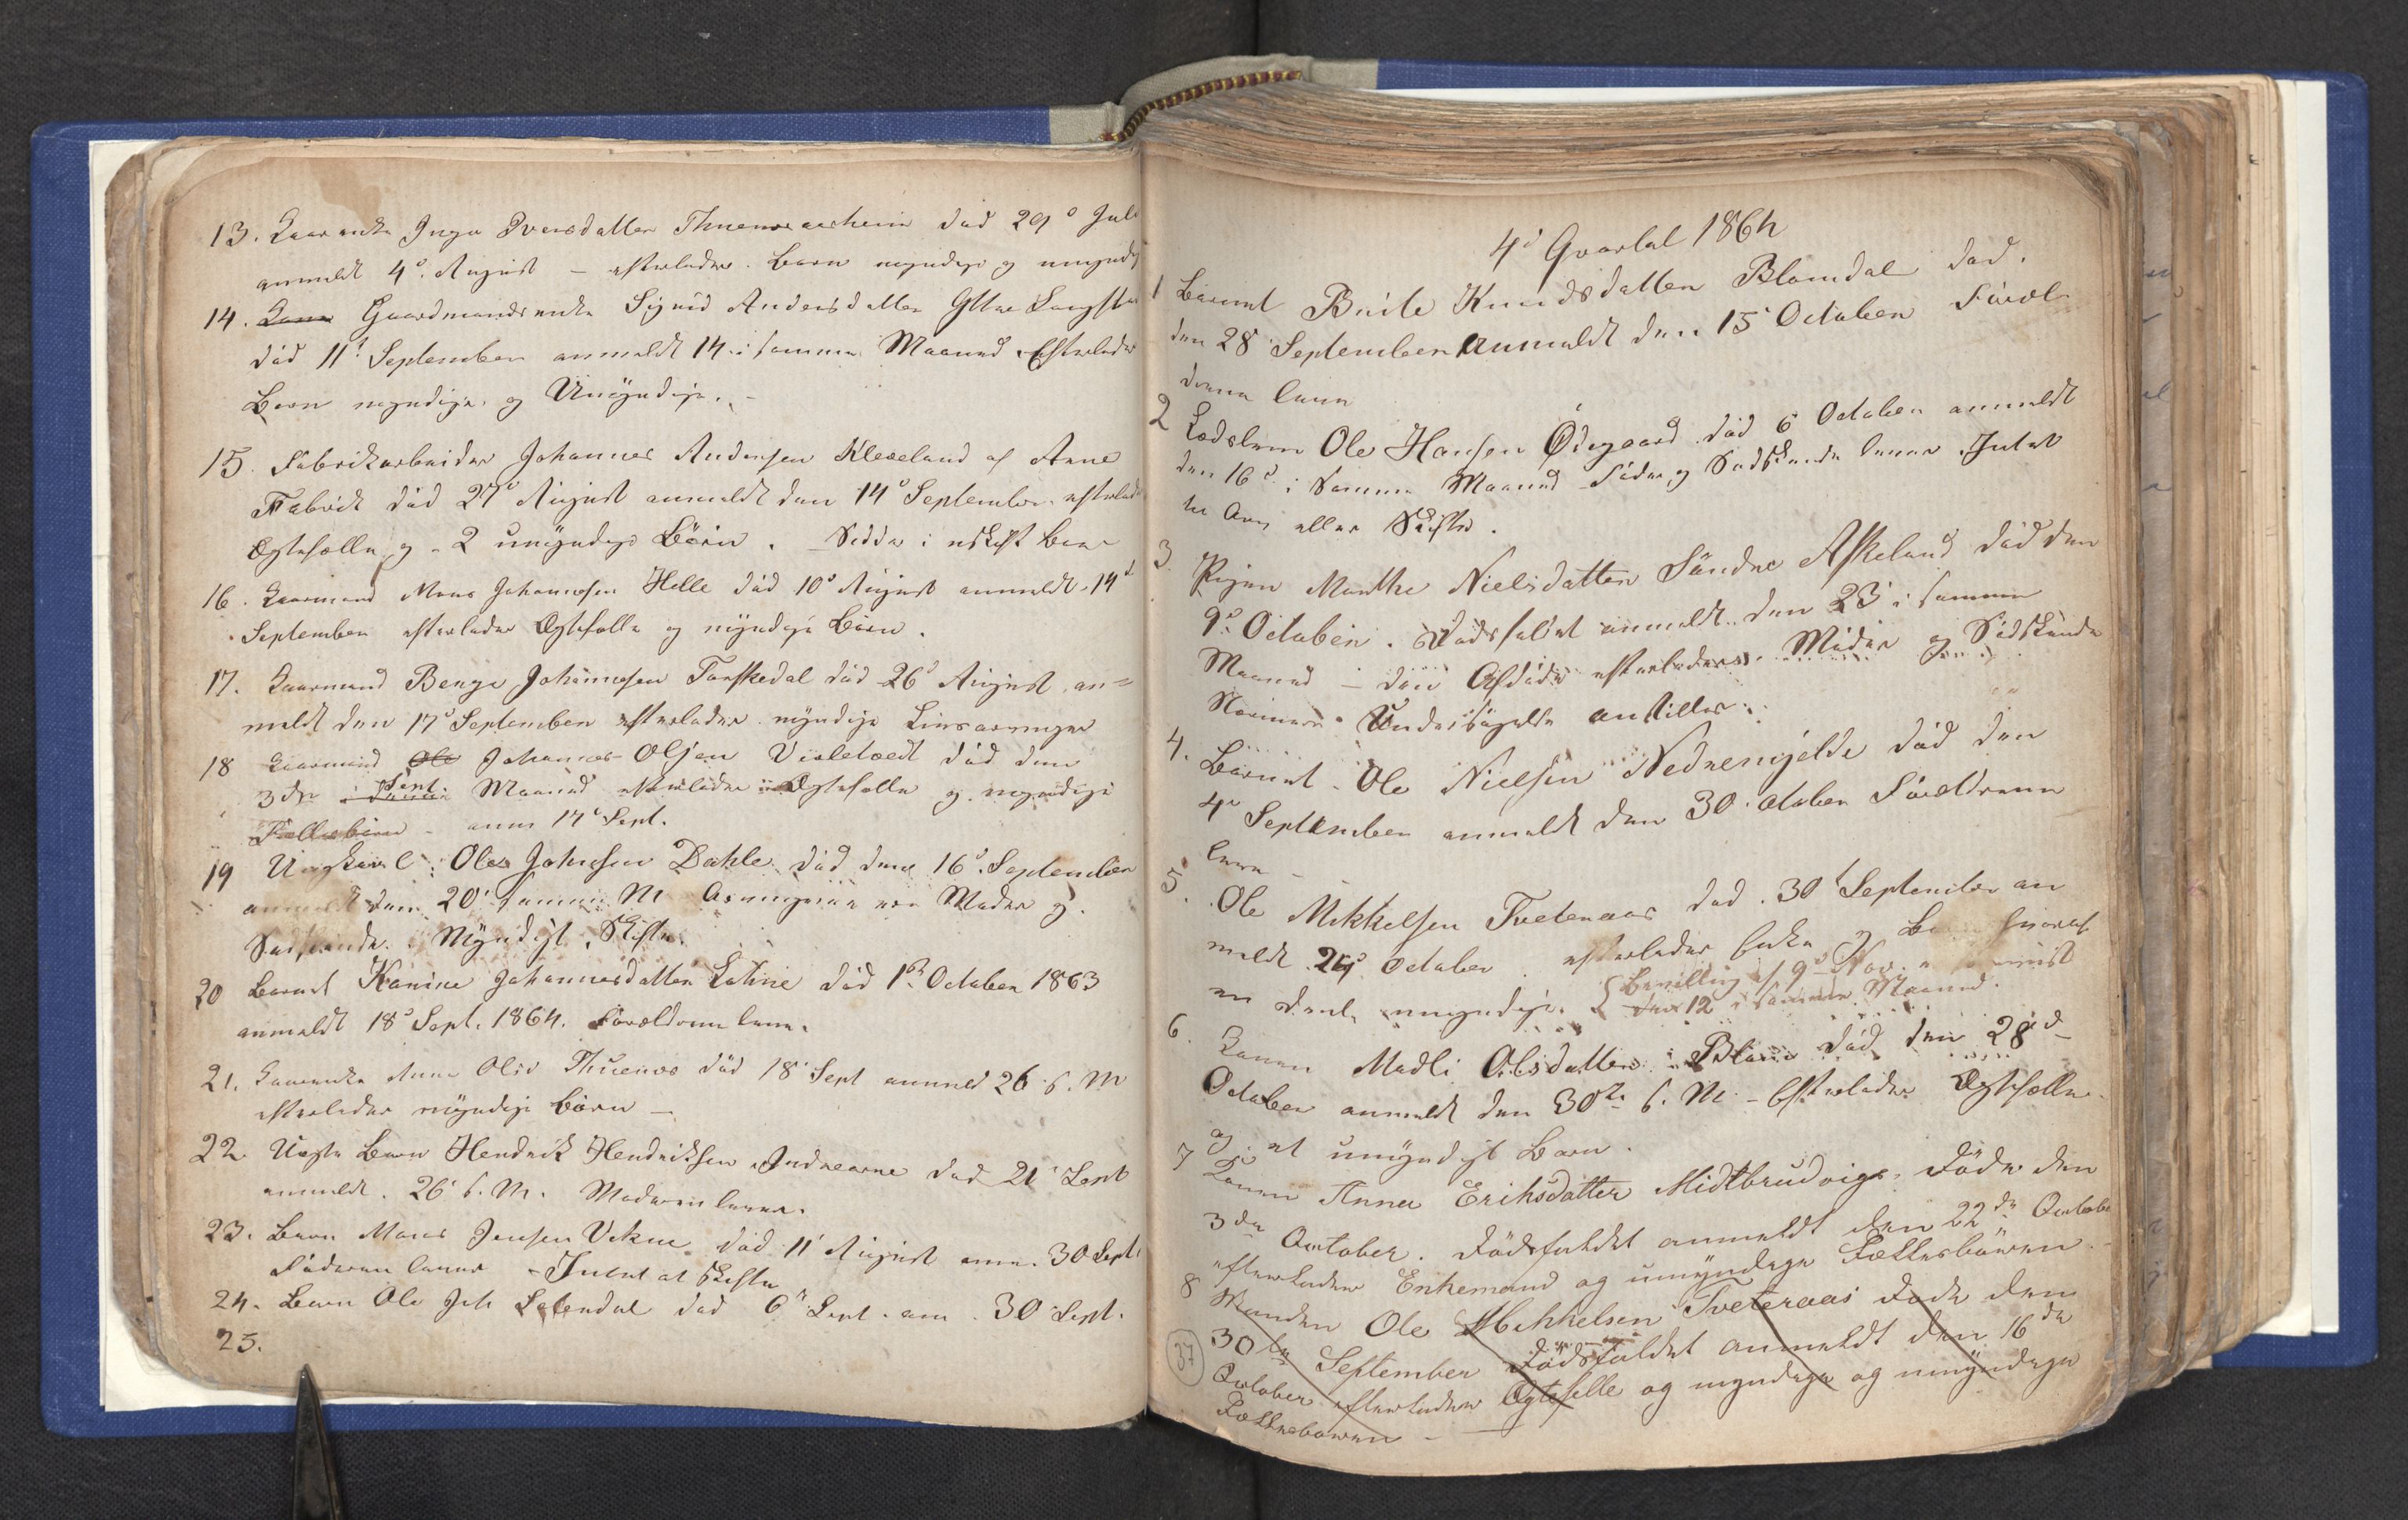 13. Kaarenke Inga Iversdatter Thuenesaarheim død 29d Juli
anmeldt 4d. August – efterlader Børn myndige og umyndige
14. Kone Gaardmandsenke Sigrid Andersdatter Ytre
død 11t September anmeldt 14 i samme Maaned. Efterlader
Børn myndige og Umyndige. –
15. Fabrikarbeider Johannes Andersen Kleveland af Arne
Fabrik død 27d August anmeldt den 14d September efterlader
Ægtefælle og 2 umyndige Børn. Sidder i uskift Bo
16. Kaarmand Mons Johannesen Helle død 10d August anmeldt 14d
September efterlader Ægtefælle og myndige Børn.
17. Kaarmand Benge Johannesen Torskedal død 26d August an=
meldt den 17d September efterlader myndige Livsarvinger
18 Kaarmand Ole Johannes Olsen død den
3die i Samme Sept. Maaned efterlader Ægtefælle og myndige
Fællesbørn – anm 17d Sept.
19 Ungkarl Ole Johnsen Dahle død den 16d. September
anmeldt den 20d samme M Arvingerne ere Moder og
Sødskende. Myndigt Skifte.
20 Barnet Karine Johannesdatter død 1ste October 1863
anmeldt 18d Sept. 1864. Forældrene leve.
21. Kaarenke Anna Olsd Thuenes død 18d Sept anmeld 26 s. M
efterlader myndige Børn –
22. Uægte Barn Hendrik Hendriksen Indrearne død 21d Sept
anmeldt. 26d s. M. Moderen lever.
23. Barn Mons Jensen Vikne død 11d August anm. 30 Sept.
Faderen lever – Intet at skifte
24. Barn Ole Joh død 6d Sept. anm. 30 Sept.
25.
4d Qvartal 1864
1 Barnet Brite Knudsdatter Blomdal død.
den 28 September anmeldt den 15d October Foræl
drene leve
2 Lodslem Ole Hansen Ødegaard død 6 October anmeldt
den 16d i Samme Maaned Fader og Sødskende lever. Intet
til Arv eller Skifte.
3. Pigen Marthe Nielsdatter Søndre Askeland død den
9d October. Dødsfaldet anmeldt den 23d i samme
Maaned – den Afdøde efterlader Moder og Sødskende
Nærmere Undersøgelse anstilles.
4. Barnet Ole Nielsen Nedremjelde død den
4d September anmeldt den 30d otober Forældrene
leve –
5. Ole Mikkelsen Tveteraas død 30t September an
meldt 24d October efterlader Enke og Børn hvoraf
en Deel umyndige. { Bevilling af 9d Nov.
den 12 i samme Maaned.
6. Konen Madli Olsdatter Blom død den 28d
October anmeldt den 30te s. M. – Efterlader Ægtefælle
og et umyndigt Barn.
7 Konen Anna Eriksdatter Midtbrudvig. døde den
3die October. Dødsfaldet anmeldt den 22de October
efterlader Enkemand og umyndige Fællesbørn. –
8 Manden Ole Mikkelsen Tveteraas døde den
30te September Dødsfaldet anmeldt den 16de
October efterlader Ægtefelle og myndige og umyndige
Fællesbørn –
37